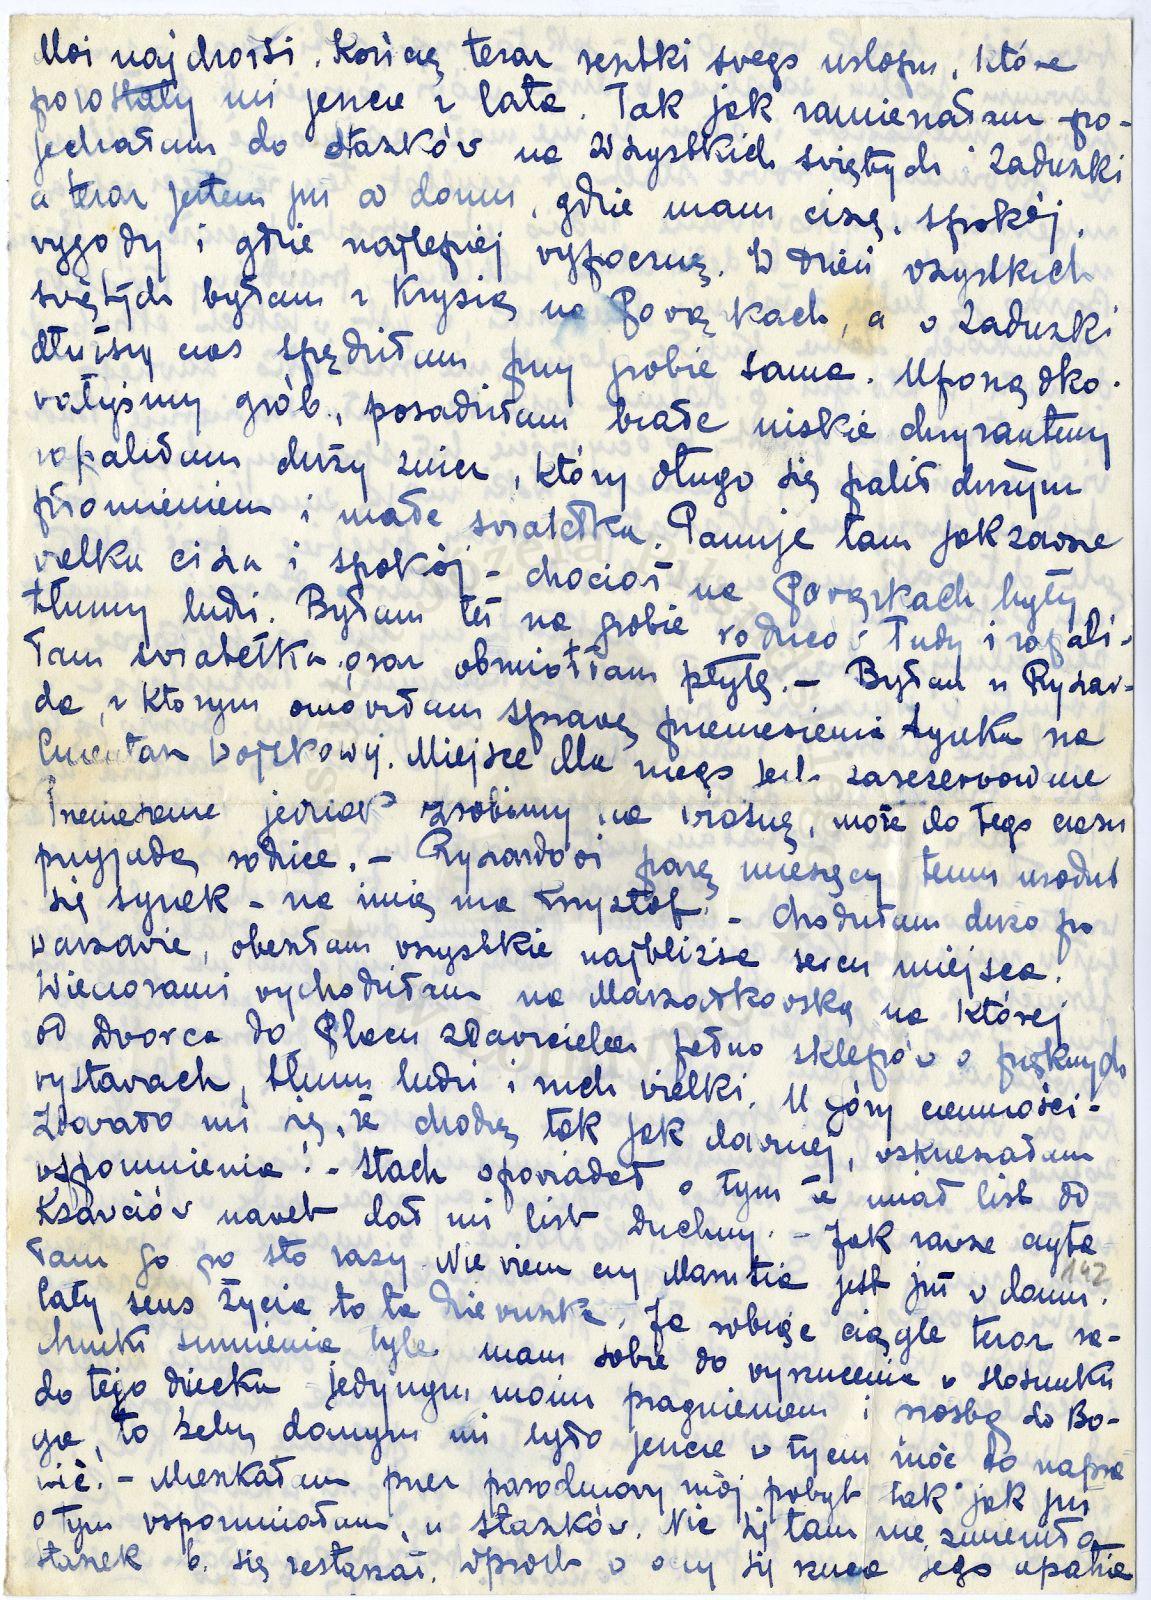 Moi najdrożsi. Kończę teraz resztki swego urlopu, które
pozostały mi jeszcze z lata. Tak jak zamierzałam po-
jechałam do Staszków na Wszystkich świętych i Zaduszki
a teraz jestem już w domu, gdzie mam ciszę, spokój,
wygody i gdzie najlepiej wypocznę. W dzień wszystkich
świętych byłam z Krysią na Powązkach, a w Zaduszki
dłuższy czas spędziłam przy grobie sama. Uporządko-
wałyśmy grób, posadziłam białe niskie chryzantemy
zapaliłam duży znicz, który długo się palił dużym
płomieniem i małe światełka. Panuje tam jak zawsze
wielka cisza i spokój - chociaż na Powązkach były
tłumy ludzi. Byłam też na grobie rodziców Tudy i zapali-
łam światełka oraz obmiotłam płytę. - Byłam u Ryszar-
da, z którym omówiłam sprawę przeniesienia Zynka na
Cmentarz Wojskowy. Miejsce dla niego jest zarezerwowane
Przeniesienie jednak zrobimy na wiosnę, może do tego czasu
przyjadą rodzice. - Ryszardowi parę miesięcy temu urodził
się synek - na imię ma Krzysztof. - Chodziłam dużo po
Warszawie, obeszłam wszystkie najbliższe sercu miejsca.
Wieczorami wychodziłam na Marszałkowską na której
od Dworca do Placu Zbawiciela pełno sklepów o pięknych
wystawach, tłumy ludzi i ruch wielki. U góry ciemności -
Zdawało mi się, że chodzę tak jak dawniej, wskrzeszałam
wspomnienia! - Stach opowiadał o tym że miał list od
Ksawciów nawet dał mi list Duchny. - Jak zawsze czyta-
łam go po sto razy. Nie wiem czy Marutia jest już w domu.
142
Cały sens życia to ta dziewuszka. Ja robię ciągle teraz ra-
chunki sumienia tyle mam sobie do wyrzucenia w stosunku
do tego dziecka - jedynym moim pragnieniem i prośbą do Bo-
ga, to żeby danym mi było jeszcze w życiu móc to napra-
wić! - Mieszkałam przez parodniowy mój pobyt tak jak już
o tym wspominałam, u Staszków. Nic się tam nie zmieniło,
Staszek b. się zestarzał. Wprost w oczy się rzuca jego apatia